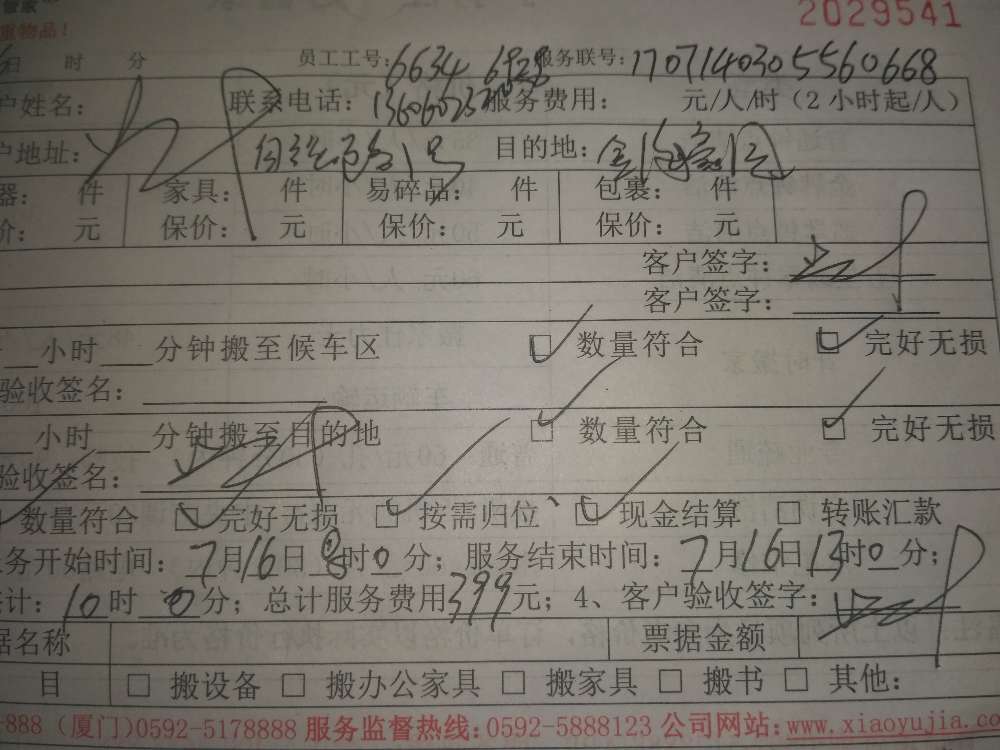 重物品！
2029541
日 时 分 员工工号：6634 服务联号：17071140305560668
户姓名： 联系电话： 服务费用： 元/人/时（2小时起/人）
户地址： 1号 目的地：
器： 件 家具： 件 易碎品： 件 包裹： 件
价： 元 保价： 元 保价： 元 保价： 元
客户签字：
客户签字：
小时 分钟搬至候车区 数量符合 完好无损
验收签名：
小时 分钟搬至目的地 数量符合 完好无损
验收签名：
数量符合 完好无损 按需归位、 现金结算 转账汇款
务开始时间：7月16日8时0分；服务结束时间：7月16日13时0分；
计：10时0分；总计服务费用399元；4、客户验收签字：
据名称 票据金额
目 搬设备 搬办公家具 搬家具 搬书 其他：
-888（厦门）0592-5178888 服务监督热线：0592-5888123 公司网站：www.xiaoyujia.co